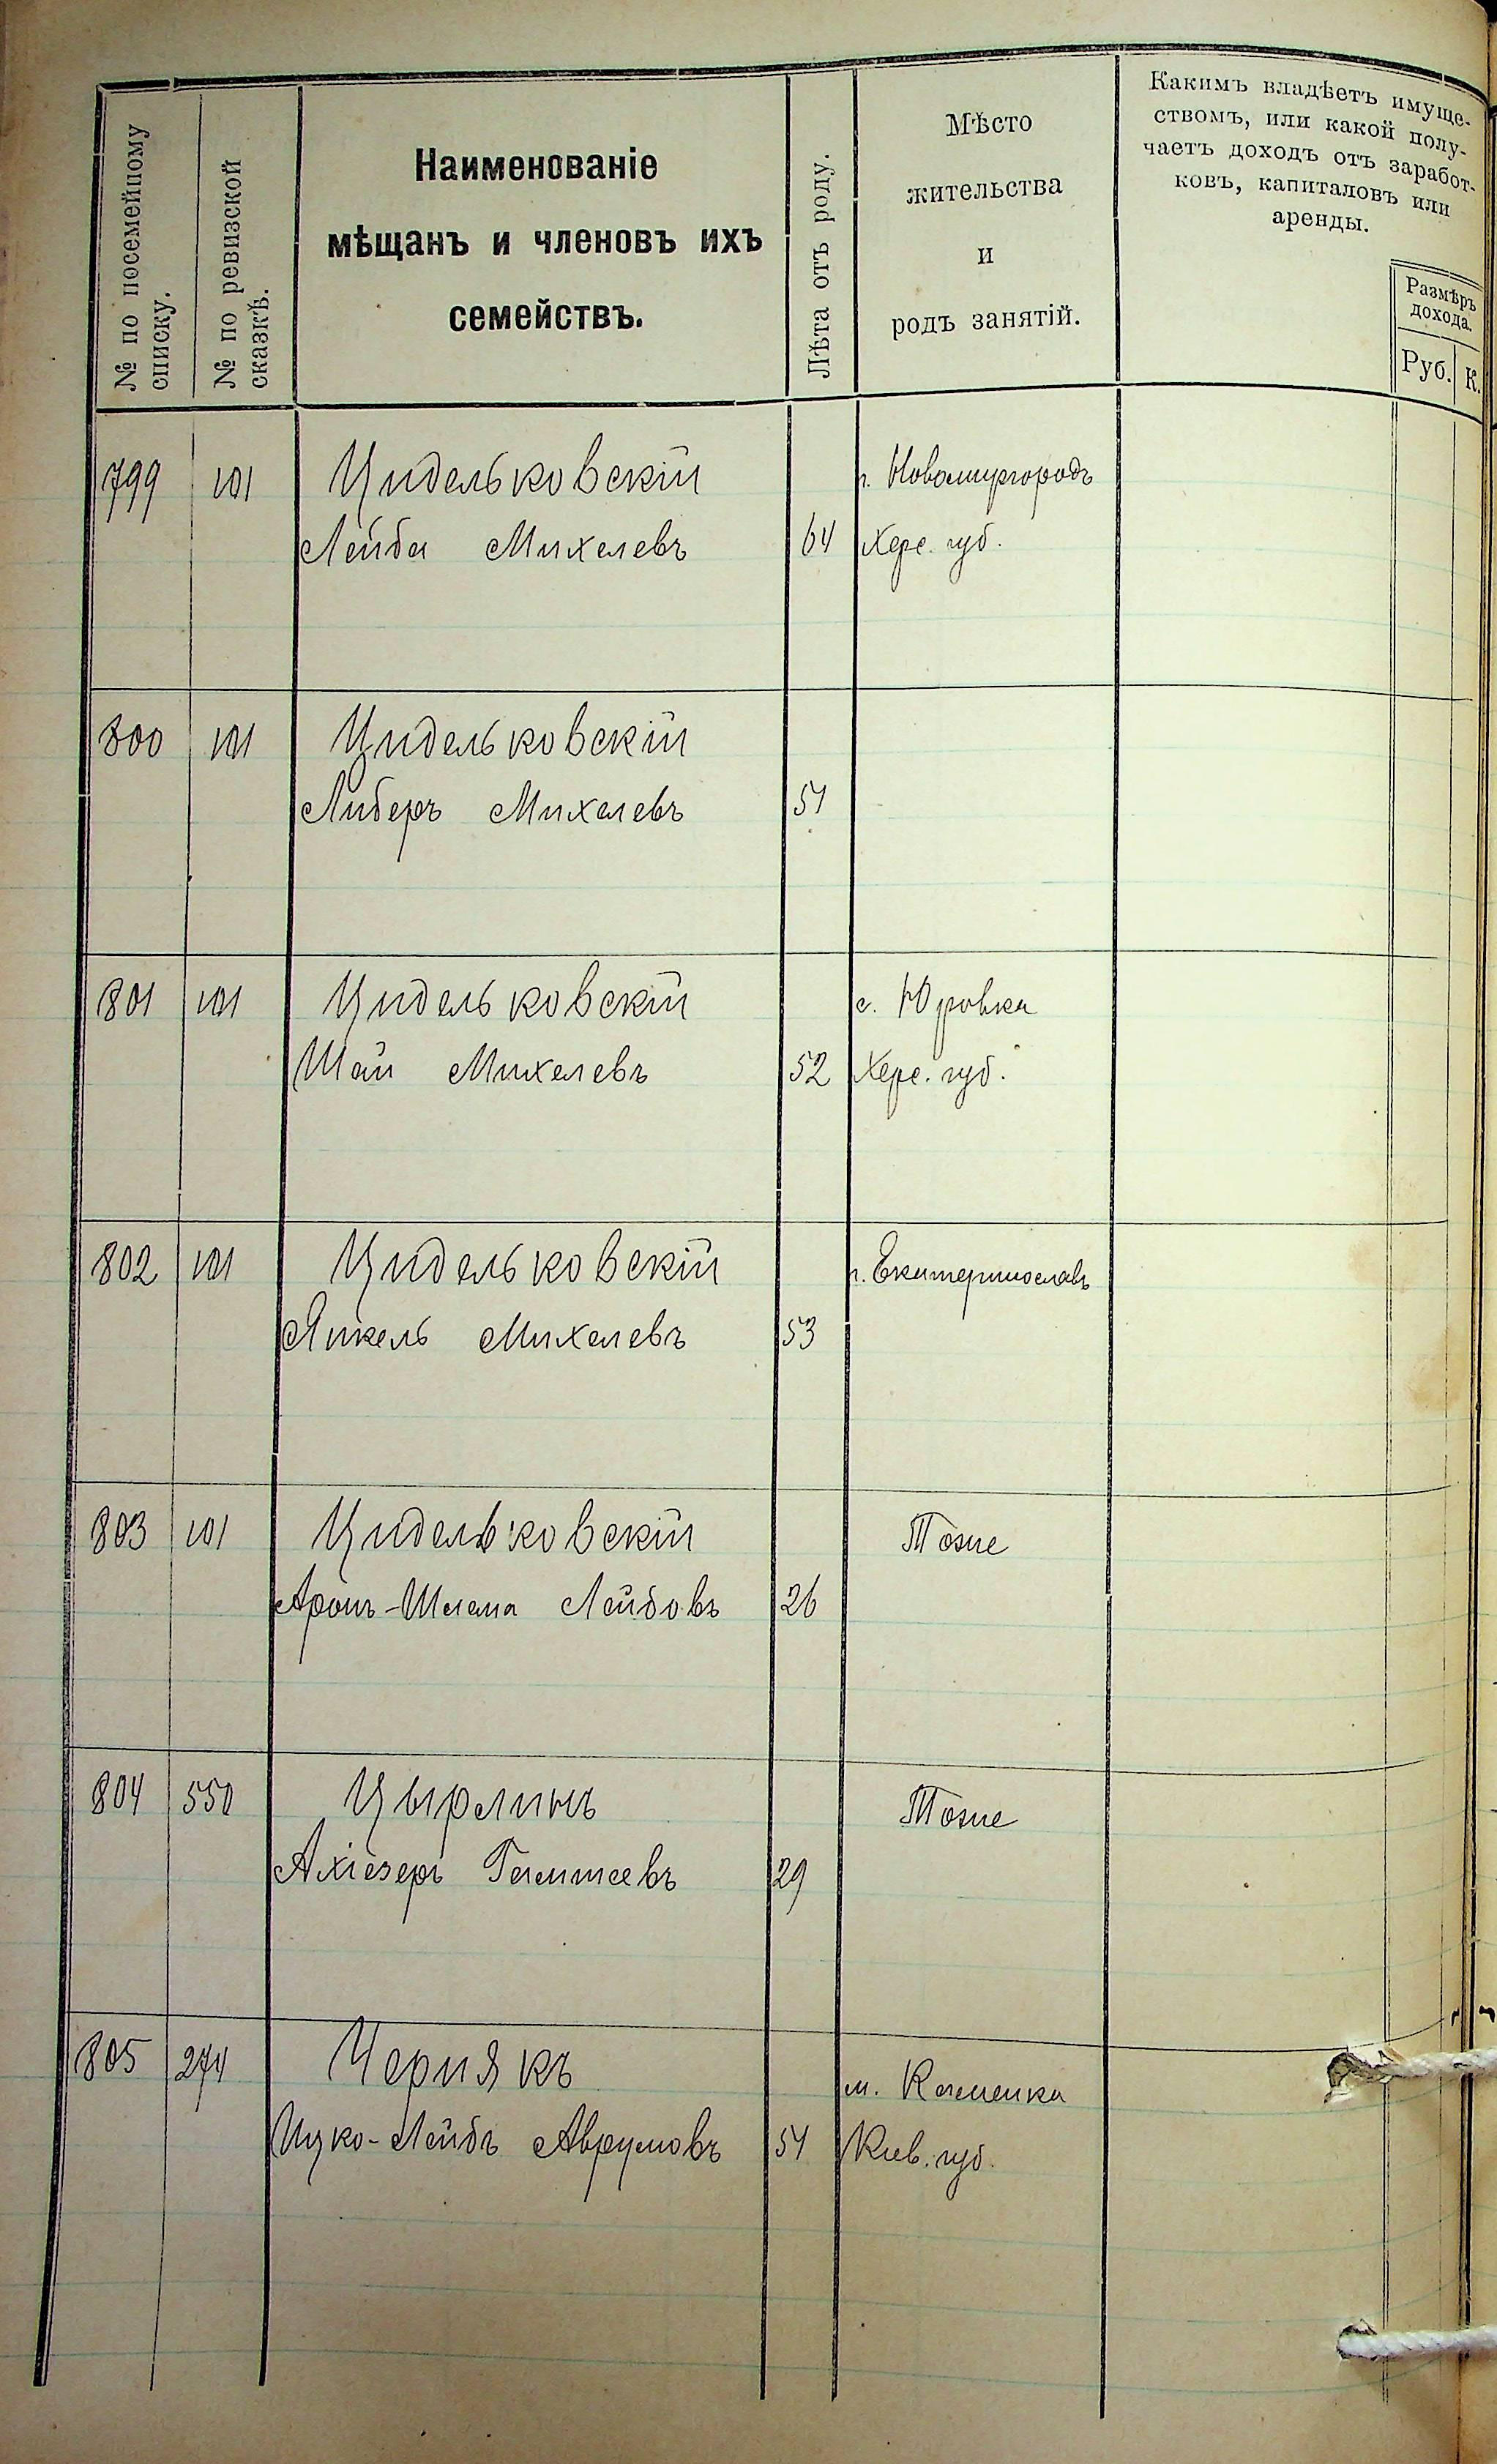 № по посемейному
списку.
№ по ревизской
сказкѣ.
Наименованіе
мѣщанъ и членовъ ихъ
семействъ.
Лѣта отъ роду.
Мѣсто
жительства
и
родъ занятій.
Какимъ владѣетъ имуще-
ствомъ, или какой полу-
чаетъ доходъ отъ заработ-
ковъ, капиталовъ или
аренды.
Размѣръ
дохода.
Руб. К.
799 101 Цидельковскій г. Новомиргородъ
Лейба Михелевъ 64 Херс. губ.
800 101 Цидельковскій
Либеръ Михелевъ 51
801 101 Цидельковскій с. Юровка
Шая Михелевъ 52 Херс. губ.
802 101 Цидельковскій г. Екатеринославъ
Янкель Михелевъ 53
803 101 Цидельковскій Тоже
Аронъ-Шлема Лейбовъ 26
804 550 Цырлинъ Тоже
Ахіезеръ 29
805 274 Чернякъ м. Каменка
Ицко-Лейбъ Аврумовъ 51 Кіев. губ.